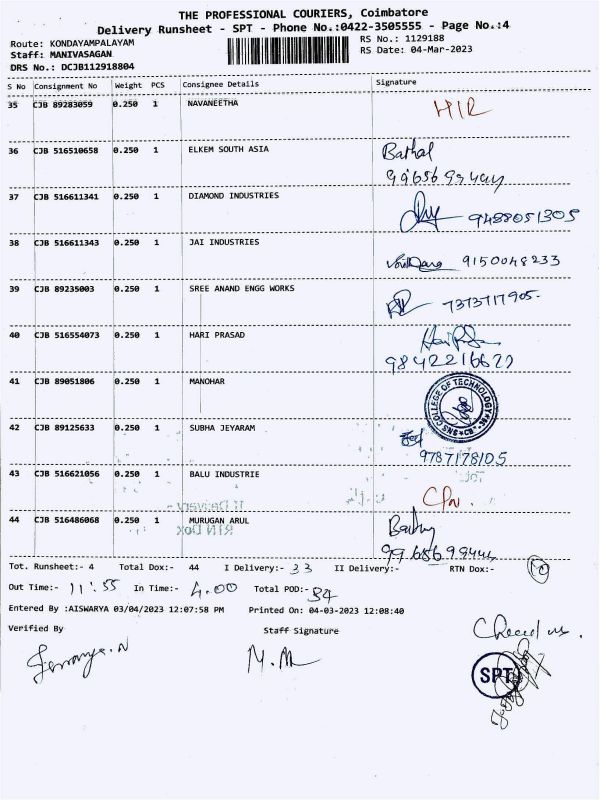 THE PROFESSIONAL COURIERS, Coimbatore
Delivery Runsheet - SPT - Phone No.:0422-3505555 - Page No.:4
Route: KONDAYAMPALAYAM
RS No.: 1129188
Staff: MANIVASAGAN
RS Date: 04-Mar-2023
DRS No.: DCJB112918804
S No Consignment No Weight PCS Consignee Details Signature
35 CJB 89283059 0.250 1 NAVANEETHA
36 CJB 516510658 0.250 1 ELKEM SOUTH ASIA
37 CJB 516611341 0.250 1 DIAMOND INDUSTRIES 9488051305
38 CJB 516611343 0.250 1 JAI INDUSTRIES 9150048233
39 CJB 89235003 0.250 1 SREE ANAND ENGG WORKS 7373717905.
40 CJB 516554073 0.250 1 HARI PRASAD
41 CJB 89051806 0.250 1 MANOHAR SNS COLLEGE OF TECHNOLOGY
42 CJB 89125633 0.250 1 SUBHA JEYARAM
9787178105
43 CJB 516621056 0.250 1 BALU INDUSTRIE
44 CJB 516486068 0.250 1 MURUGAN ARUL
Tot. Runsheet:- 4 Total Dox:- 44 I Delivery:- 33 II Delivery:- RTN Dox:- 10
Out Time:- 11:55 In Time:- 4.00 Total POD:- 34
Entered By :AISWARYA 03/04/2023 12:07:58 PM Printed On: 04-03-2023 12:08:40
Verified By Staff Signature
SPT